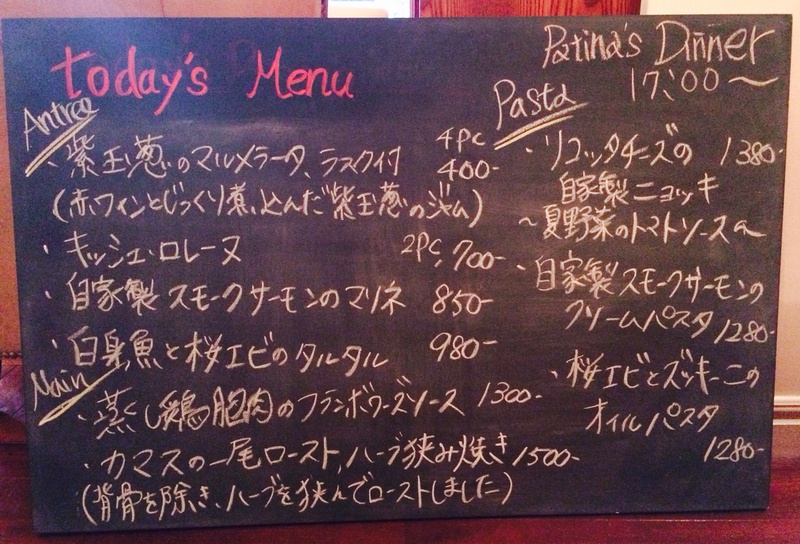 today's Menu
Antree
・紫玉葱のマルメラータ、ラスク付 4pc 400-
(赤ワインとじっくり煮込んだ紫玉葱のジャム)
・キッシュ・ロレーヌ 2pc, 700-
・自家製スモークサーモンのマリネ 850-
・白身魚と桜エビのタルタル 980-
Main
・蒸し鶏胸肉のフランボワーズソース 1300-
・カマスの一尾ロースト、ハーブ挟み焼き 1500-
(背骨を除き、ハーブを挟んでローストしました)
Patina's Dinner
17:00〜
Pasta
・リコッタチーズの 1380-
自家製ニョッキ
〜夏野菜のトマトソース〜
・自家製スモークサーモンの
クリームパスタ 1280-
・桜エビとズッキーニの
オイルパスタ
1280-